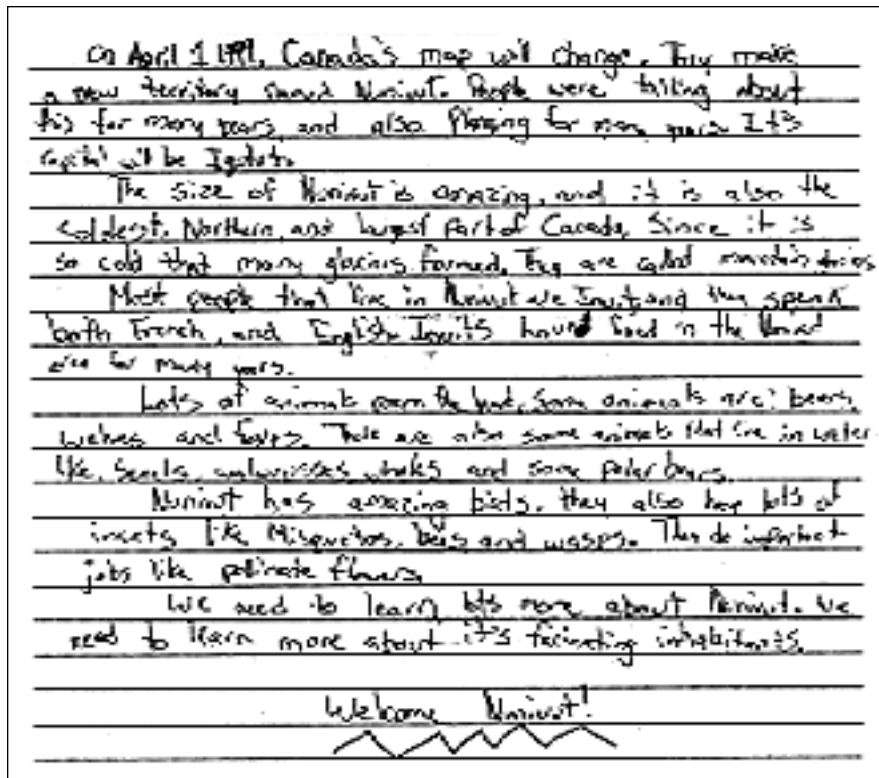 on April 1 1999, Canada's map will change. They make
a new territory named Nunivut. People were talking about
this for many years and also Planing for many years. It's
capital will be
The size of Nunivut is amazing, and it is also the
coldest, Northern, and largest part of Canada, Since it is
so cold that many glaciers formed. They are called mountain
Most people that live in Nunivut are Inuit, and they speak
both French, and English. Inuits have lived in the
area for many years.
Lots of animals roam the land, Some animals are: bears,
wolves and foxes. There are also some animals that live in water
like, seals, walrusses, whales and some polar bears.
Nunivut has amazing birds. they also have lots of
insects like Misquitos, bees and wasps. They do important
jobs like pollinate flowers.
We need to learn lots more about Nunivut. We
need to learn more about it's facinating inhabitants.
Welcome Nunivut!